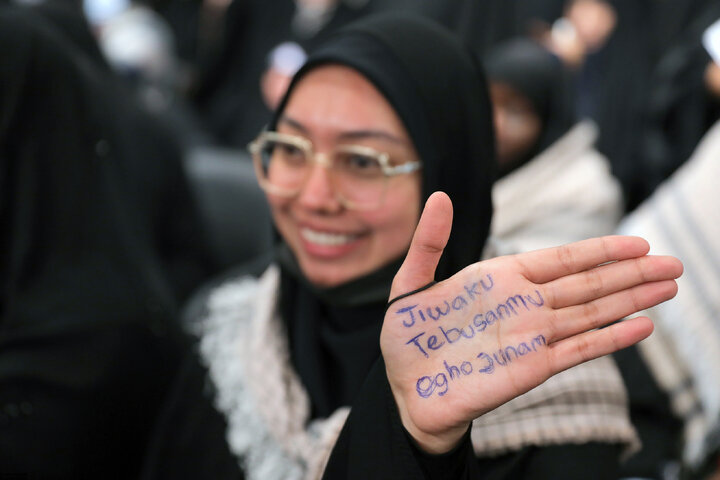 Jiwaku
Tebusanmu
Ogho Junam